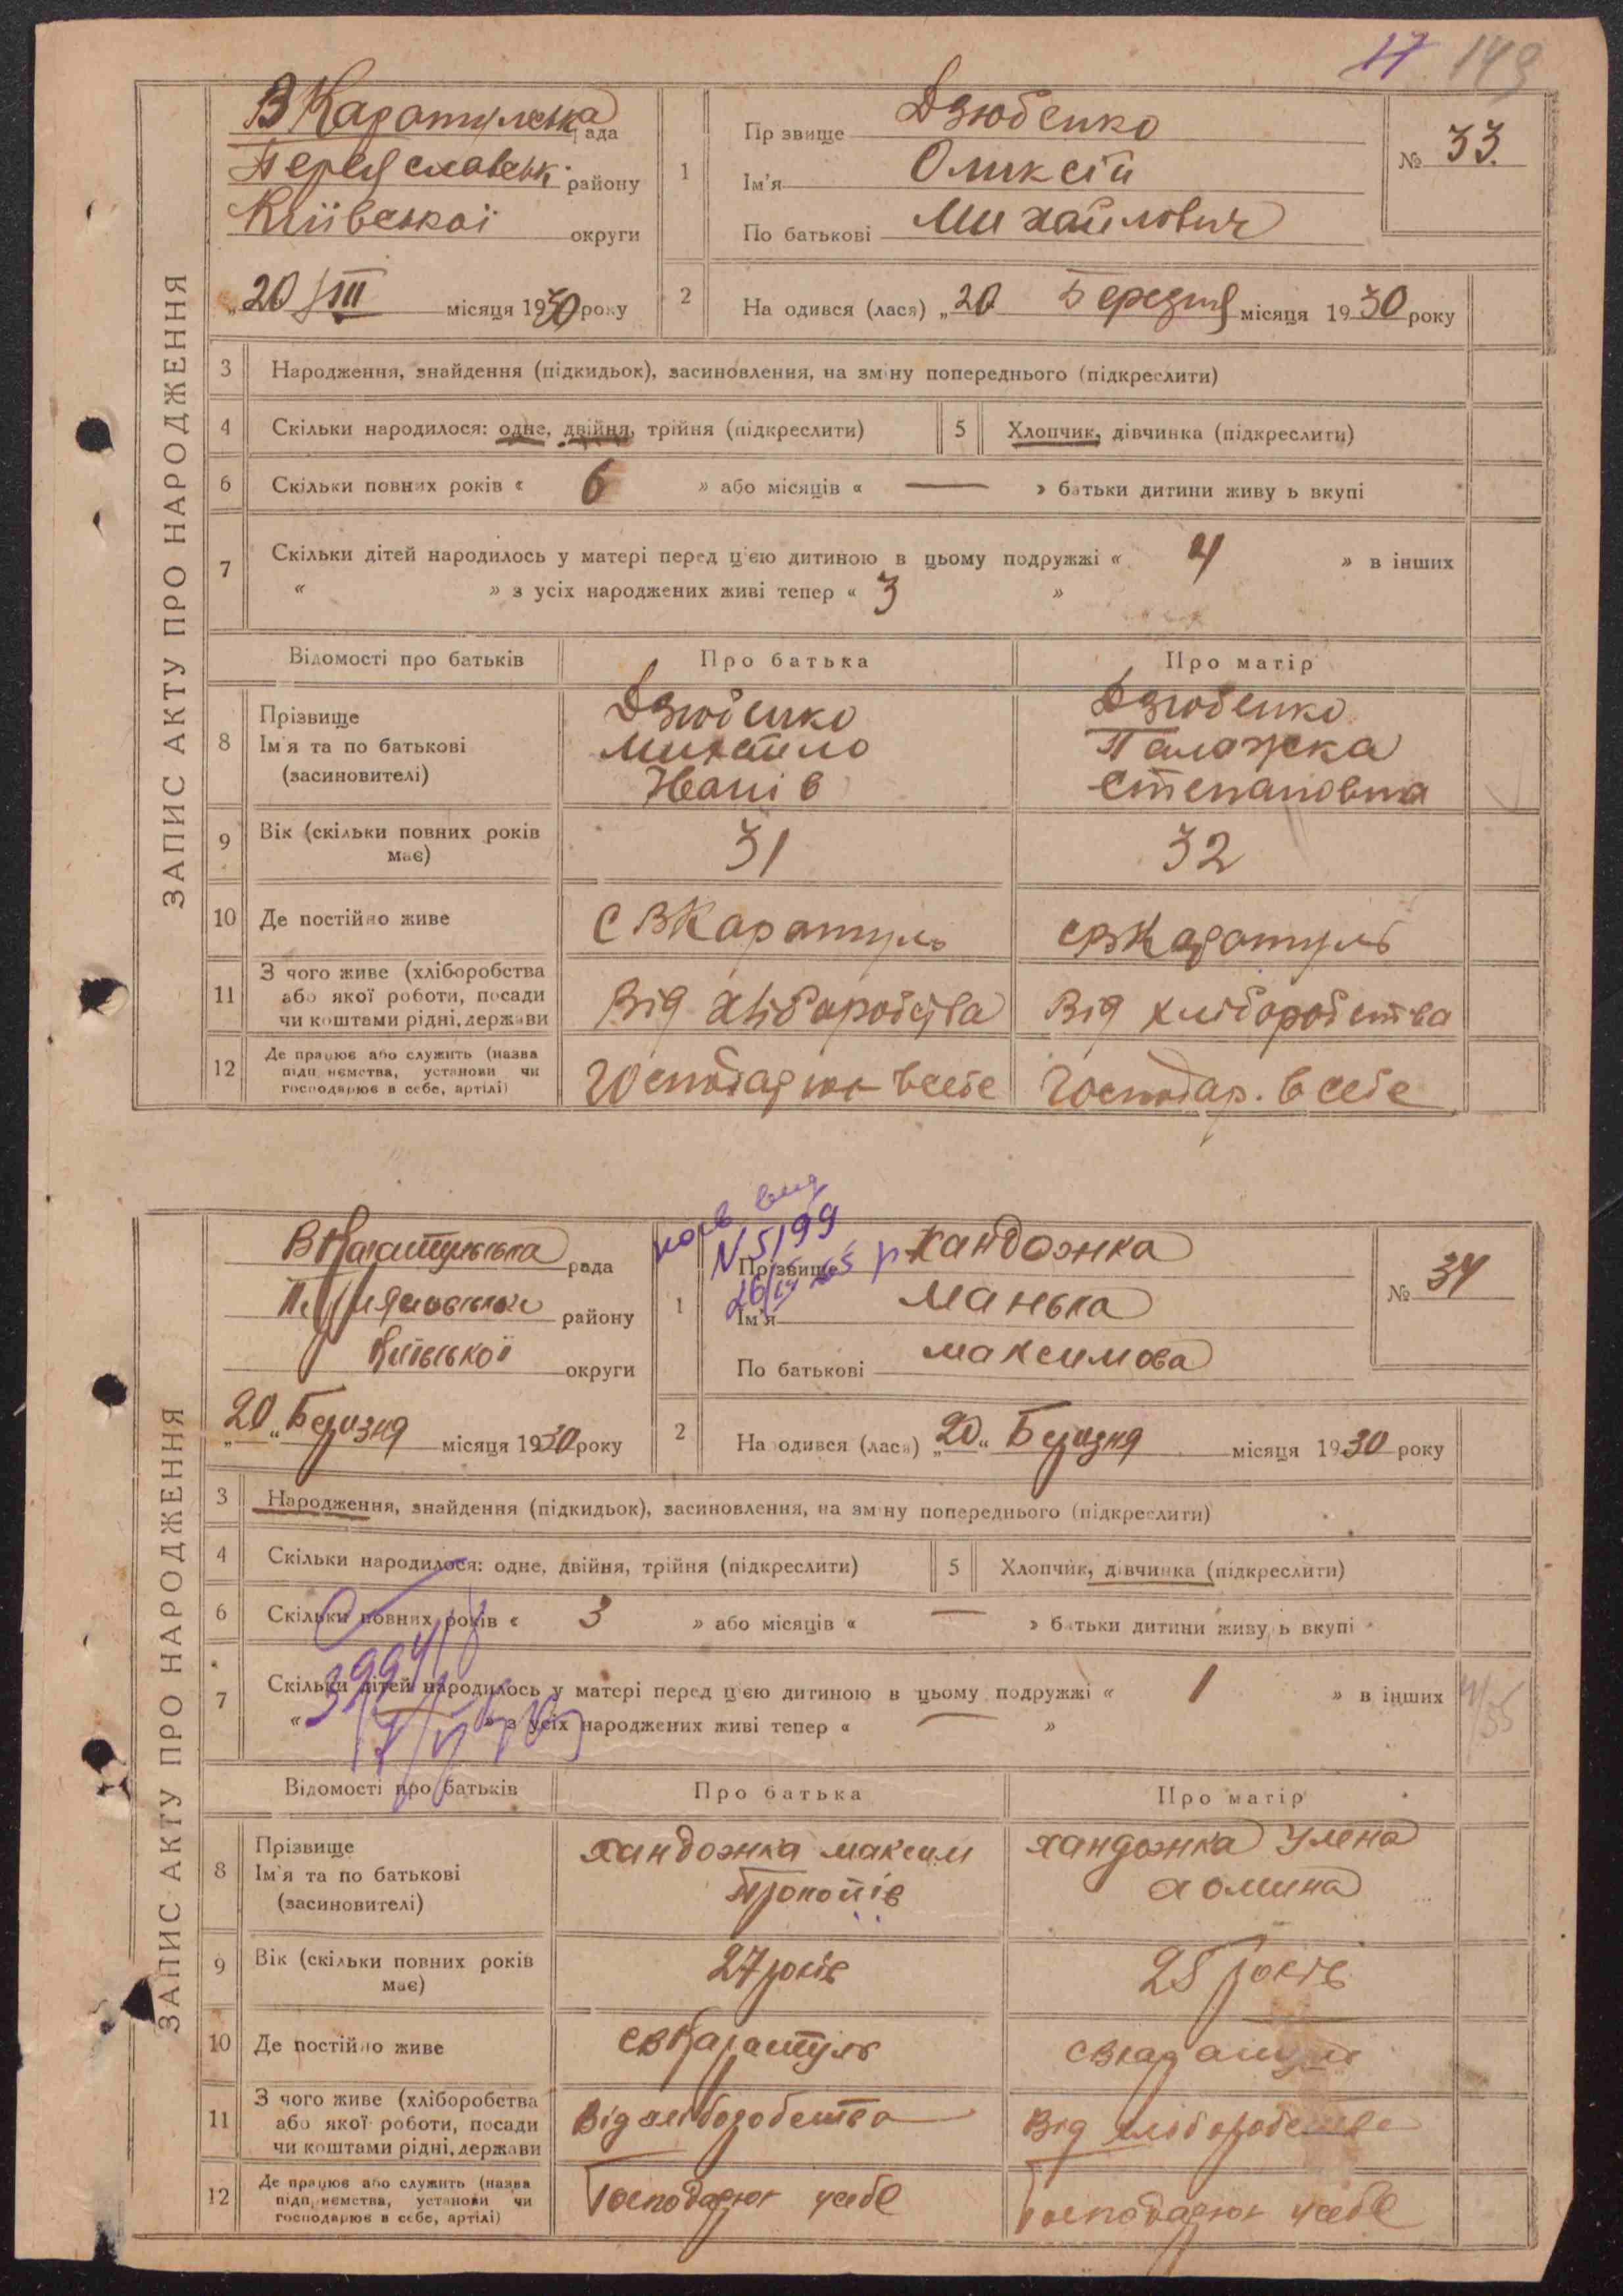 17 149
ЗАПИС АКТУ ПРО НАРОДЖЕННЯ
В Каратульська рада
Переяславськ. району
Київської округи
„20/III місяця 1930 року
1
Прізвище Дзюбенко
Ім'я Оликсій
По батькові Михайлович
№ 33.
2 На одився (лася) „20 Березня місяця 1930 року
3 Народження, знайдення (підкидьок), засиновлення, на зміну попереднього (підкреслити)
4 Скільки народилося: одне, двійня, трійня (підкреслити) 5 Хлопчик, дівчинка (підкреслити)
6 Скільки повних років « 6 » або місяців « — » батьки дитини живу ь вкупі
7 Скільки дітей народилось у матері перед цією дитиною в цьому подружжі « 4 » в інших
« » з усіх народжених живі тепер « 3 »
Відомості про батьків Про батька Про матір
8 Прізвище Ім'я та по батькові (засиновителі)
Дзюбенко Михайло Іванів
Дзюбенко Палажка Степановна
9 Вік (скільки повних років має) 31 32
10 Де постійно живе С ВКаратуль с ВКаратуль
11 З чого живе (хліборобства або якої роботи, посади чи коштами рідні, держави
Від хліборобства Від хліборобства
12 Де працює або служить (назва підприємства, установи чи господарює в себе, артілі)
Господарює в себе Господар. в себе
ЗАПИС АКТУ ПРО НАРОДЖЕННЯ
ВКаратульська рада
Переяславської району
Київської округи
„20„ Березня місяця 1930 року
N 5199
1
Прізвище Хандожка
Ім'я Манька
По батькові Максимова
№ 34
2 На одився (лася) „20„ Березня місяця 1930 року
3 Народження, знайдення (підкидьок), засиновлення, на зміну попереднього (підкреслити)
4 Скільки народилося: одне, двійня, трійня (підкреслити) 5 Хлопчик, дівчинка (підкреслити)
6 Скільки повних років « 3 » або місяців « — » батьки дитини живу ь вкупі
7 Скільки дітей народилось у матері перед цією дитиною в цьому подружжі « 1 » в інших
« — » з усіх народжених живі тепер « — »
Відомості про батьків Про батька Про матір
8 Прізвище Ім'я та по батькові (засиновителі)
Хандожка Максим Прокопів
Хандожка Улена Хомина
9 Вік (скільки повних років має) 27 років 28 років
10 Де постійно живе с ВКаратуль с ВКаратуль
11 З чого живе (хліборобства або якої роботи, посади чи коштами рідні, держави
Від хліборобства Від хліборобства
12 Де працює або служить (назва підприємства, установи чи господарює в себе, артілі)
Господарює усебе Господарює усебе